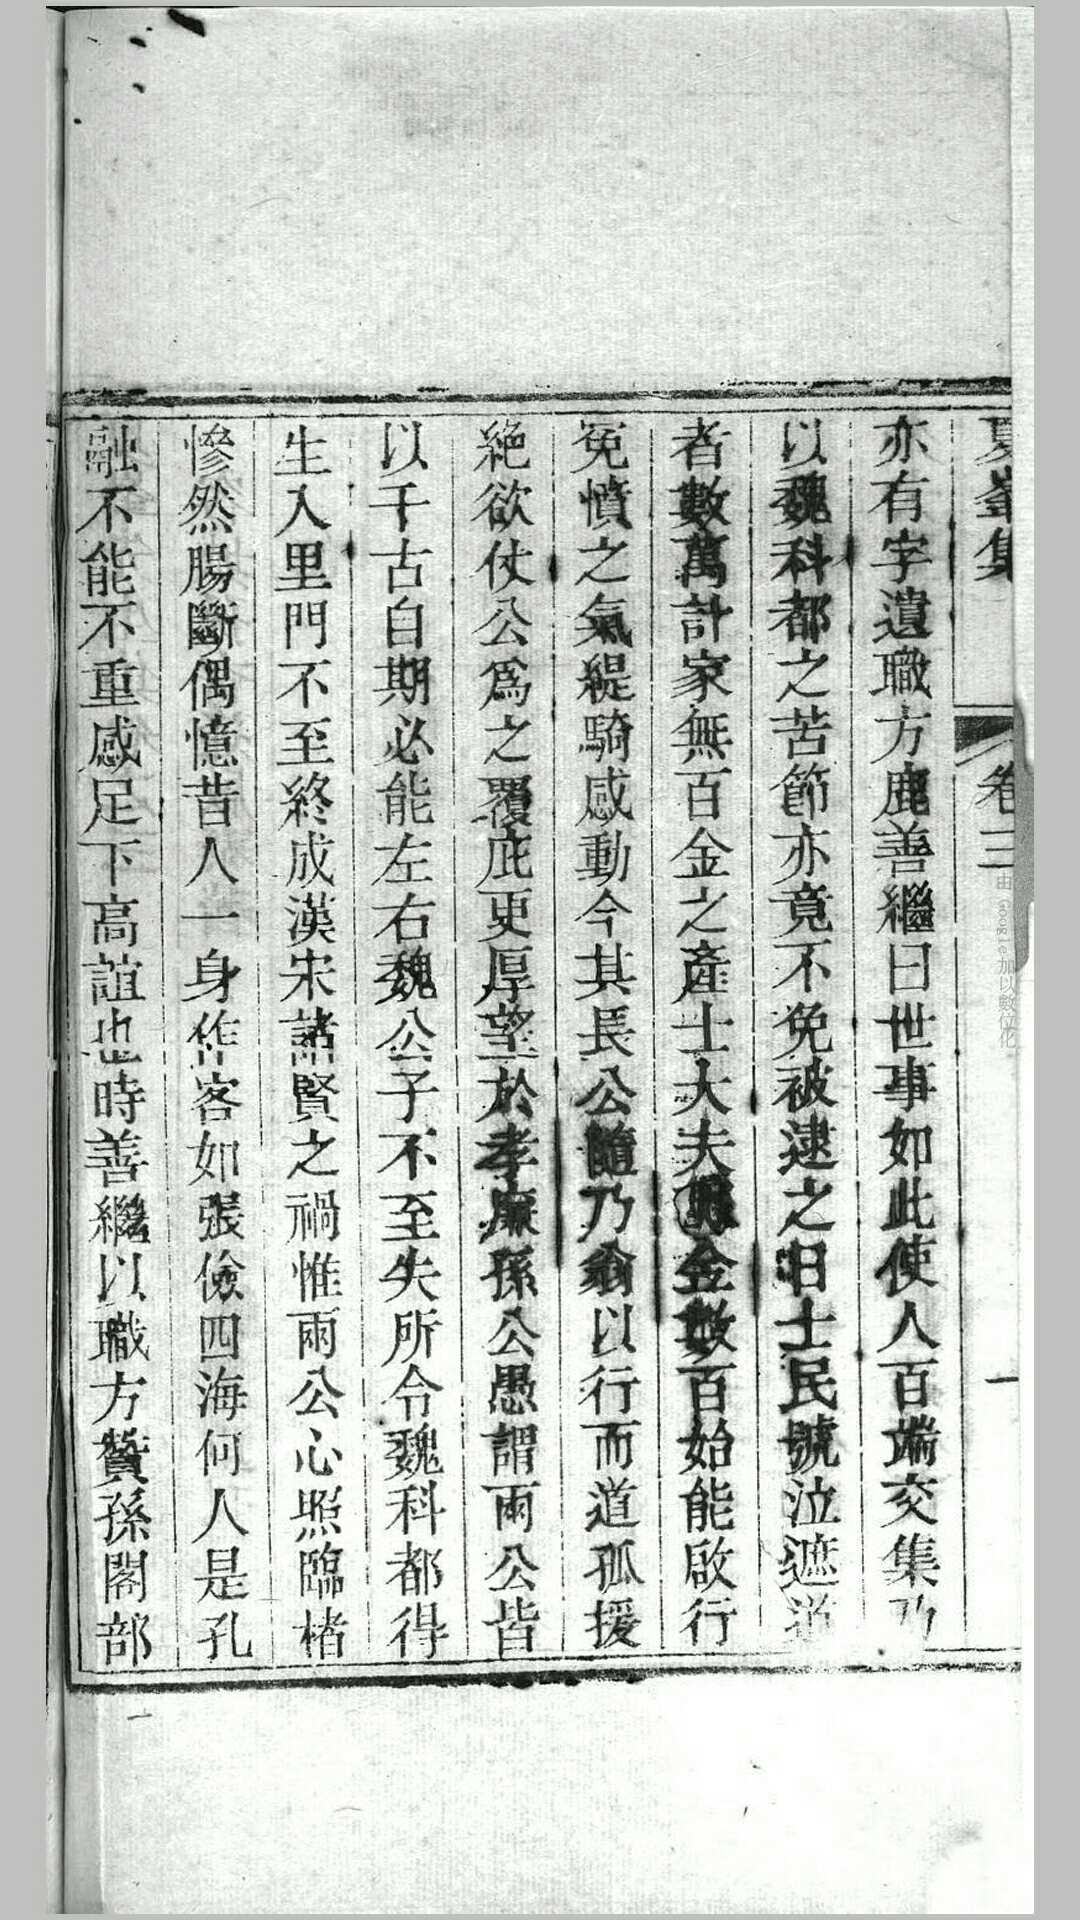 夏峯集
卷三
一
亦有字遺職方鹿善繼曰世事如此使人百端交集乃
以魏科都之苦節亦竟不免被逮之日士民號泣遮道
者數萬計家無百金之產士大夫醵金數百始能啟行
冤憤之氣緹騎感動今其長公隨乃翁以行而道孤援
絕欲仗公爲之覆庇更厚望於孝廉孫公愚謂兩公皆
以千古自期必能左右魏公子不至失所令魏科都得
生入里門不至終成漢宋諸賢之禍惟兩公心照臨楮
慘然腸斷偶憶昔人一身作客如張儉四海何人是孔
融不能不重感足下高誼也時善繼以職方贊孫閣部
由 Google 加以數位化